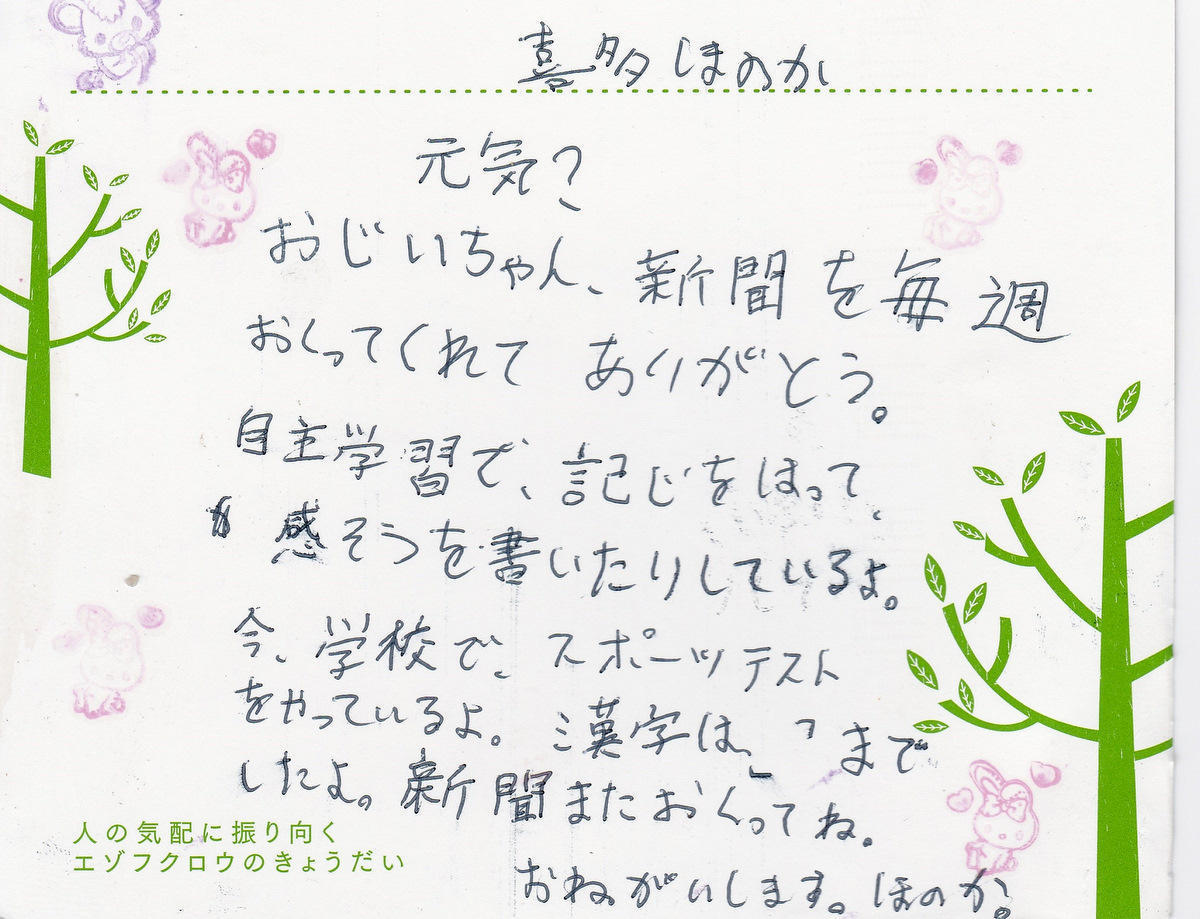 喜多ほのか
元気?
おじいちゃん、新聞を毎週
おくってくれて ありがとう。
自主学習で、記じをはって、
感そうを書いたりしているよ。
今、学校で、スポーツテスト
をやっているよ。漢字は、まで
したよ。新聞またおくってね。
おねがいします。ほのか。
人の気配に振り向く
エゾフクロウのきょうだい